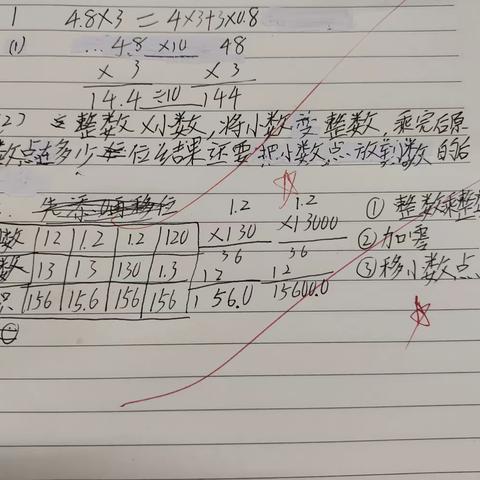 1 4.8×3 = 4×3+3×0.8
(1) ... 4.8 ×10 48
× 3 × 3
14.4 ÷10 144
2) 整数×小数,将小数变整数,乘完后原
数点在多少位结果还要把小数点放到数的后
先添0再移位 1.2 1.2 ① 整数乘整
数 12 1.2 1.2 120 ×130 ×13000 ②加零
数 13 13 130 1.3 36 36 ③移小数点
12 12
积 156 15.6 156 156 156.0 15600.0